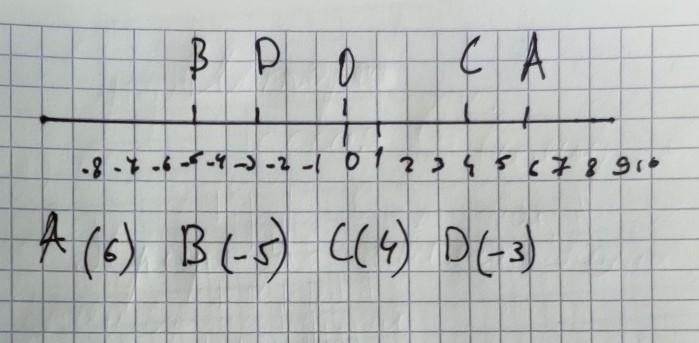 B D O C A
-8 -7 -6 -5 -4 -3 -2 -1 0 1 2 3 4 5 6 7 8 9 10
A (6) B (-5) C (4) D (-3)